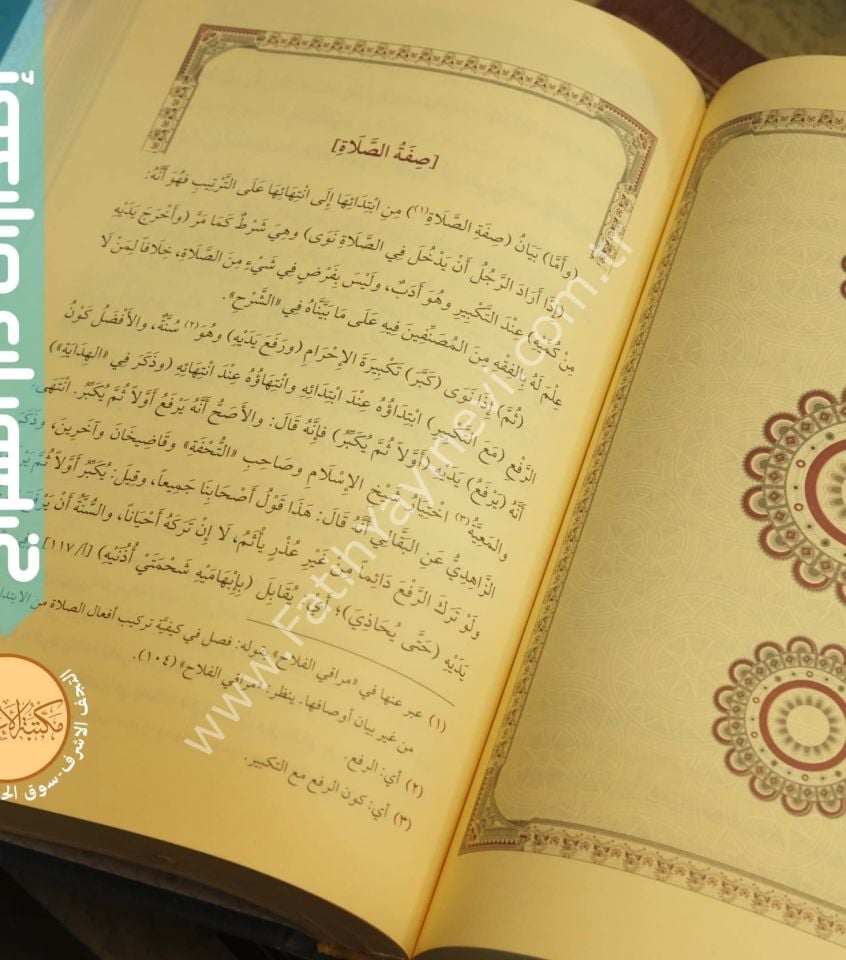 [صِفَةُ الصَّلَاةِ]
(وَأَمَّا) بَيَانُ (صِفَةِ الصَّلَاةِ(١)) مِنِ ابْتِدَائِهَا إِلَى انْتِهَائِهَا عَلَى التَّرْتِيبِ فَهُوَ أَنَّهُ:
(إِذَا أَرَادَ الرَّجُلُ أَنْ يَدْخُلَ فِي الصَّلَاةِ نَوَى) وَهِيَ شَرْطٌ كَمَا مَرَّ (وَأَخْرَجَ يَدَيْهِ
مِنْ كُمَّيْهِ) عِنْدَ التَّكْبِيرِ وَهُوَ أَدَبٌ، وَلَيْسَ بِفَرْضٍ فِي شَيْءٍ مِنَ الصَّلَاةِ، خِلَافاً لِمَنْ لَا
عِلْمَ لَهُ بِالْفِقْهِ مِنَ المُصَنِّفِينَ فِيهِ عَلَى مَا بَيَّنَّاهُ فِي «الشَّرْحِ».
(ثُمَّ) إِذَا نَوَى (كَبَّرَ) تَكْبِيرَةَ الإِحْرَامِ (وَرَفَعَ يَدَيْهِ) وَهُوَ(٢) سُنَّةٌ، وَالأَفْضَلُ كَوْنُ
الرَّفْعِ (مَعَ التَّكْبِيرِ) ابْتِدَاؤُهُ عِنْدَ ابْتِدَائِهِ وَانْتِهَاؤُهُ عِنْدَ انْتِهَائِهِ (وَذَكَرَ فِي «الهِدَايَةِ»)
أَنَّهُ (يَرْفَعُ) يَدَيْهِ (أَوَّلاً ثُمَّ يُكَبِّرُ) فَإِنَّهُ قَالَ: وَالأَصَحُّ أَنَّهُ يَرْفَعُ أَوَّلاً ثُمَّ يُكَبِّرُ. انْتَهَى.
وَالمَعِيَّةُ(٣) اخْتِيَارُ شَيْخِ الإِسْلَامِ وَصَاحِبِ «التُّحْفَةِ» وَقَاضِيخَانَ وَآخَرِينَ، وَذَكَرَ
الزَّاهِدِيُّ عَنِ البَقَّالِيِّ أَنَّهُ قَالَ: هَذَا قَوْلُ أَصْحَابِنَا جَمِيعاً، وَقِيلَ: يُكَبِّرُ أَوَّلاً ثُمَّ
وَلَوْ تَرَكَ الرَّفْعَ دَائِماً مِنْ غَيْرِ عُذْرٍ يَأْثَمُ، لَا إِنْ تَرَكَهُ أَحْيَاناً، وَالسُّنَّةُ أَنْ
يَدَيْهِ (حَتَّى يُحَاذِيَ)؛ أَيْ: يُقَابِلَ (بِإِبْهَامَيْهِ شَحْمَتَيْ أُذُنَيْهِ) [أ/١١٧]
(١) عبر عنها في «مراقي الفلاح» بقوله: فصل في كيفيَّة تركيب أفعال الصلاة من
من غير بيان أوصافها. ينظر: «مراقي الفلاح» (١٠٤).
(٢) أي: الرفع.
(٣) أي: كون الرفع مع التكبير.
www.Fatihyayinevi.com.tr
النجف الاشرف-سوق